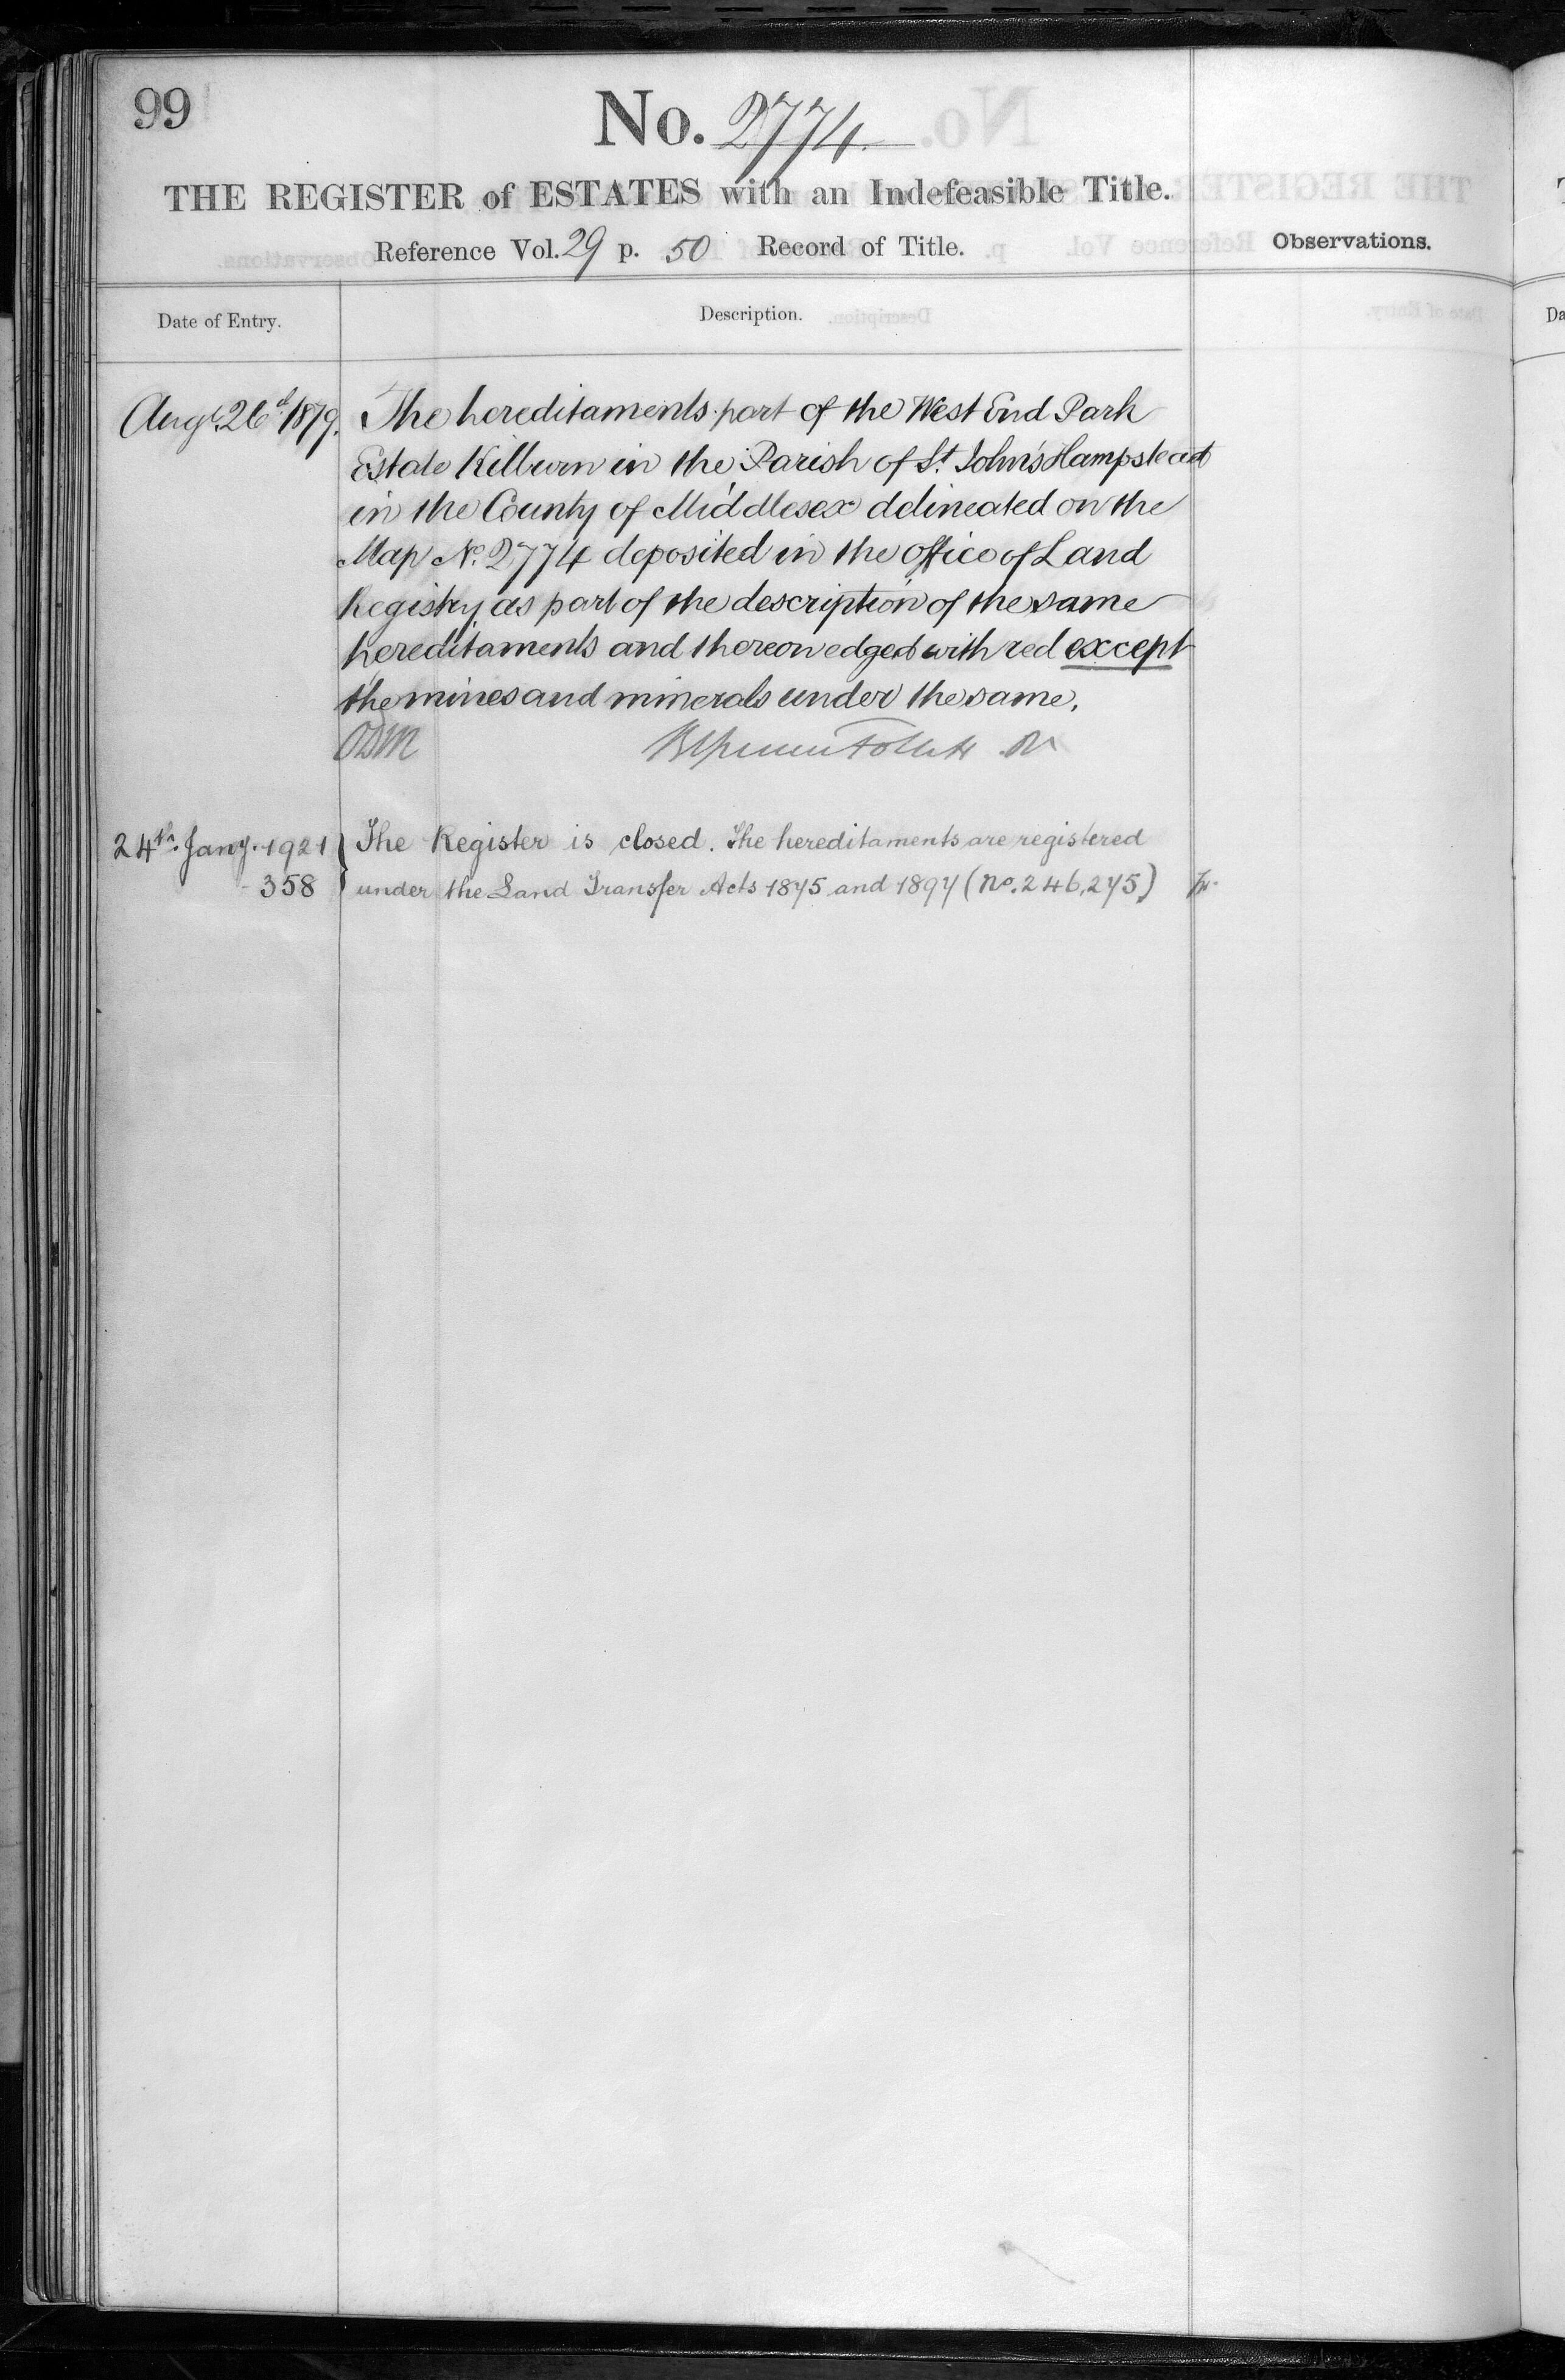 99
No. 2774.
THE REGISTER of ESTATES with an Indefeasible Title.
Reference Vol. 29 p. 50 Record of Title.
Observations.
Date of Entry.
Description.
Augt. 26th 1879.
The hereditaments part of the West End Park
Estate Kilburn in the Parish of St. John's Hampstead
in the County of Middlesex delineated on the
Map No. 2774 deposited in the office of Land
Registry as part of the description of the same
hereditaments and thereon edged with red except
the mines and minerals under the same.
24th. Jany. 1921
358
The Register is closed. The hereditaments are registered
under the Land Transfer Acts 1875 and 1897 (No. 246,275)